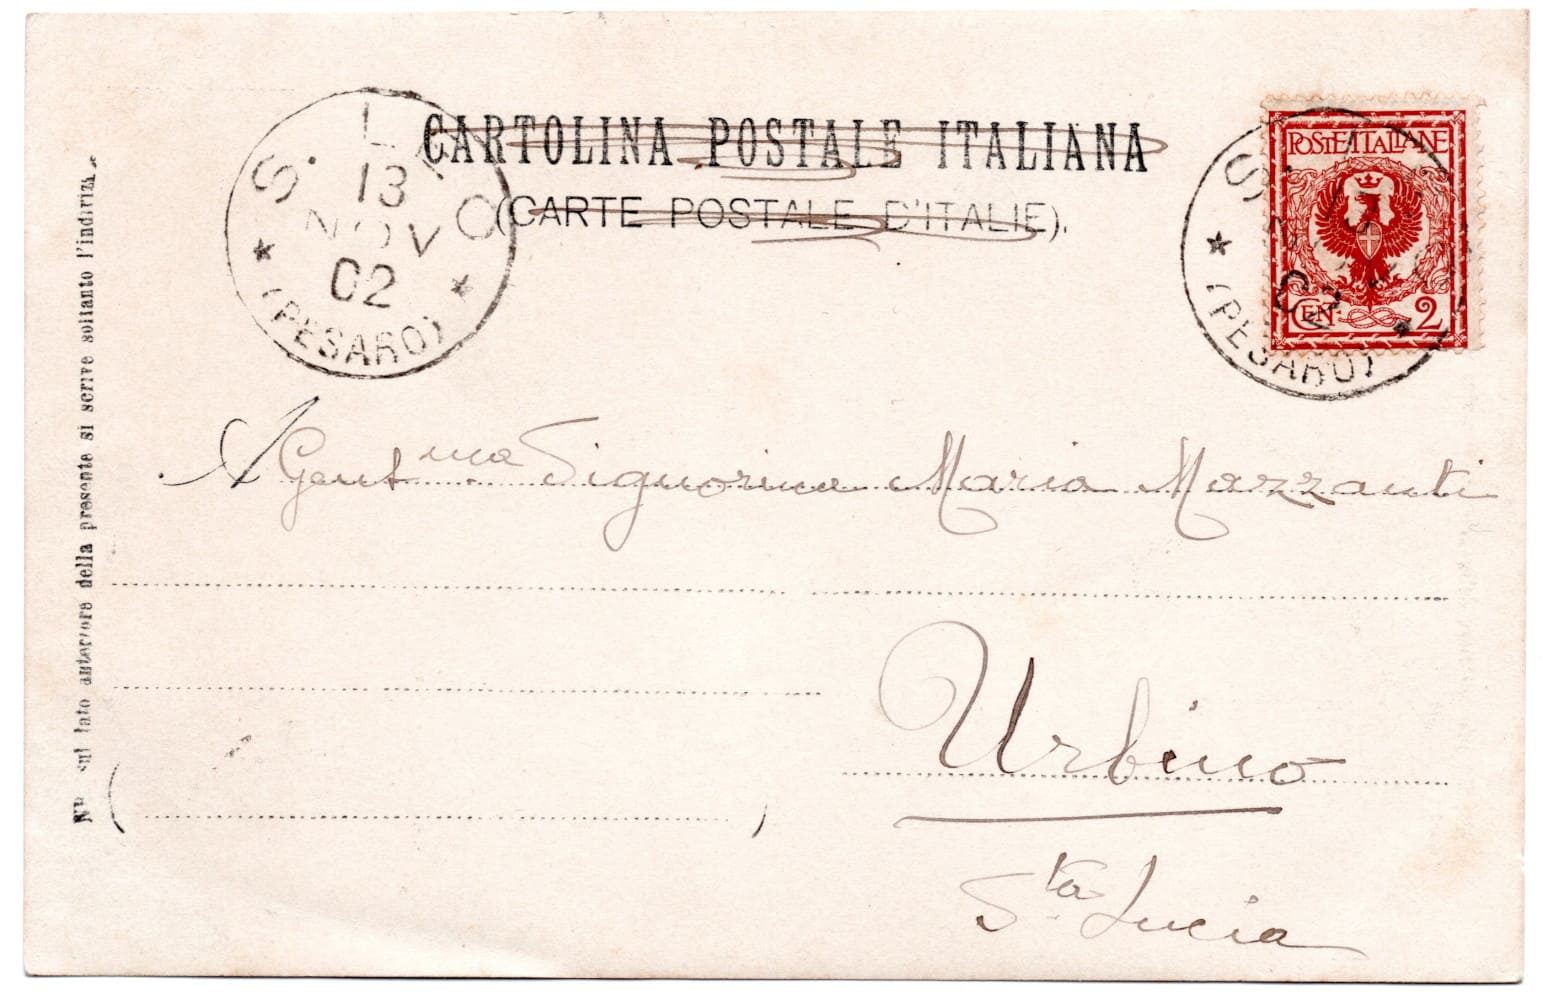 CARTOLINA POSTALE ITALIANA
(CARTE POSTALE D'ITALIE).
S. L
13
NOV
02
(PESARO)
POSTE ITALIANE
CEN. 2
02
(PESARO)
A Gent.ma Signorina Maria Mazzanti
Urbino
Sta Lucia
sul lato anteriore della presente si scrive soltanto l'indirizz